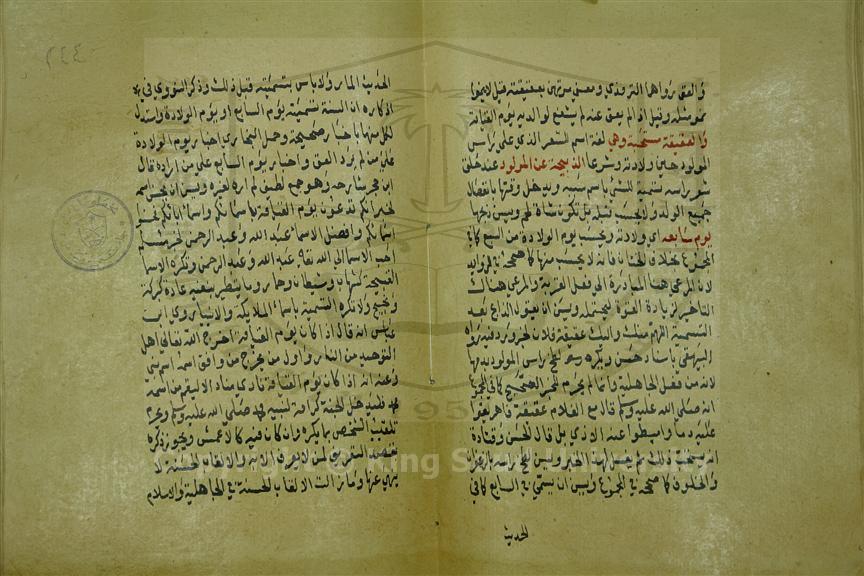 والعق رواهما الترمذي ومعنى مرتهن بعقيقته قيل لا ينمو
نمو مثله وقيل اذا لم يعق عنه لم يشفع لوالديه يوم القيامة
والعقيقة مستحبة وهي لغة اسم للشعر الذي على راس
المولود حين ولادته وشرعا الذبيحة عن المولود عند حلق
شعر راسه تسمية للشيء باسم سببه ويدخل وقتها بانفصال
جميع الولد ولا تحسب قبله بل تكون شاة لحم ويسن ذبحها
يوم سابعه اي ولادته ويحسب يوم الولادة من السبع كما في
المجموع بخلاف الختان فانه لا يحسب منها كما صححه في الزوائد
لان المرعي هنا المبادرة الى فعل القربة والمرعي هناك
التاخير لزيادة القوة ليحتمله ويسن ان يقول الذابح بعد
التسمية اللهم منك واليك عقيقة فلان لخبر ورد فيه رواه
البيهقي باسناد حسن ويكره لطخ راس المولود بدمها
لانه من فعل الجاهلية وانما لم يحرم للخبر الصحيح كما في المجموع
انه صلى الله عليه وسلم قال مع الغلام عقيقة فاهريقوا
عليه دما واميطوا عنه الاذى بل قال الحسن وقتادة
انه يستحب ذلك ثم يغسل لهذا الخبر ويسن لطخ راسه بالزعفران
والخلوق كما صححه في المجموع ويسن ان يسمى في السابع كما في
الحديث
٢٤٤
الحديث المار ولا باس بتسميته قبل ذلك وذكر النووي في
اذكاره ان السنة تسميته يوم السابع او يوم الولادة واستدل
لكل منهما باخبار صحيحة وحمل البخاري اخبار يوم الولادة
على من لم يرد العق واخبار يوم السابع على من اراده قال
ابن حجر شارحه وهو جمع لطيف لم اره لغيره ويسن ان يحسن اسمه
لخبر انكم تدعون يوم القيامة باسمائكم واسماء ابائكم فحسنوا
اسمائكم وافضل الاسماء عبد الله وعبد الرحمن لخبر مسلم
احب الاسما الى الله تعالى عبد الله وعبد الرحمن وتكره الاسما
القبيحة كشهاب وشيطان وحمار وما يتطير بنفيه عادة كبركة
ونجيح ولا تكره التسمية باسماء الملايكة والانبيا روي عن ابن
عباس انه قال اذا كان يوم القيامة اخرج الله تعالى اهل
التوحيد من النار واول من يخرج من وافق اسمه اسم نبي
وعنه انه اذا كان يوم القيامة نادى مناد الا ليقم من اسمه
محمد فليدخل الجنة كرامة لنبيه محمد صلى الله عليه وسلم ويحرم
تلقيب الشخص بما يكره وان كان فيه كالاعمش ويجوز ذكره
بقصد التعريف لمن لا يعرف الا به والالقاب الحسنة لا
ينهى عنها وما زالت الالقاب الحسنة في الجاهلية والاسلام
Copyright © King Saud University